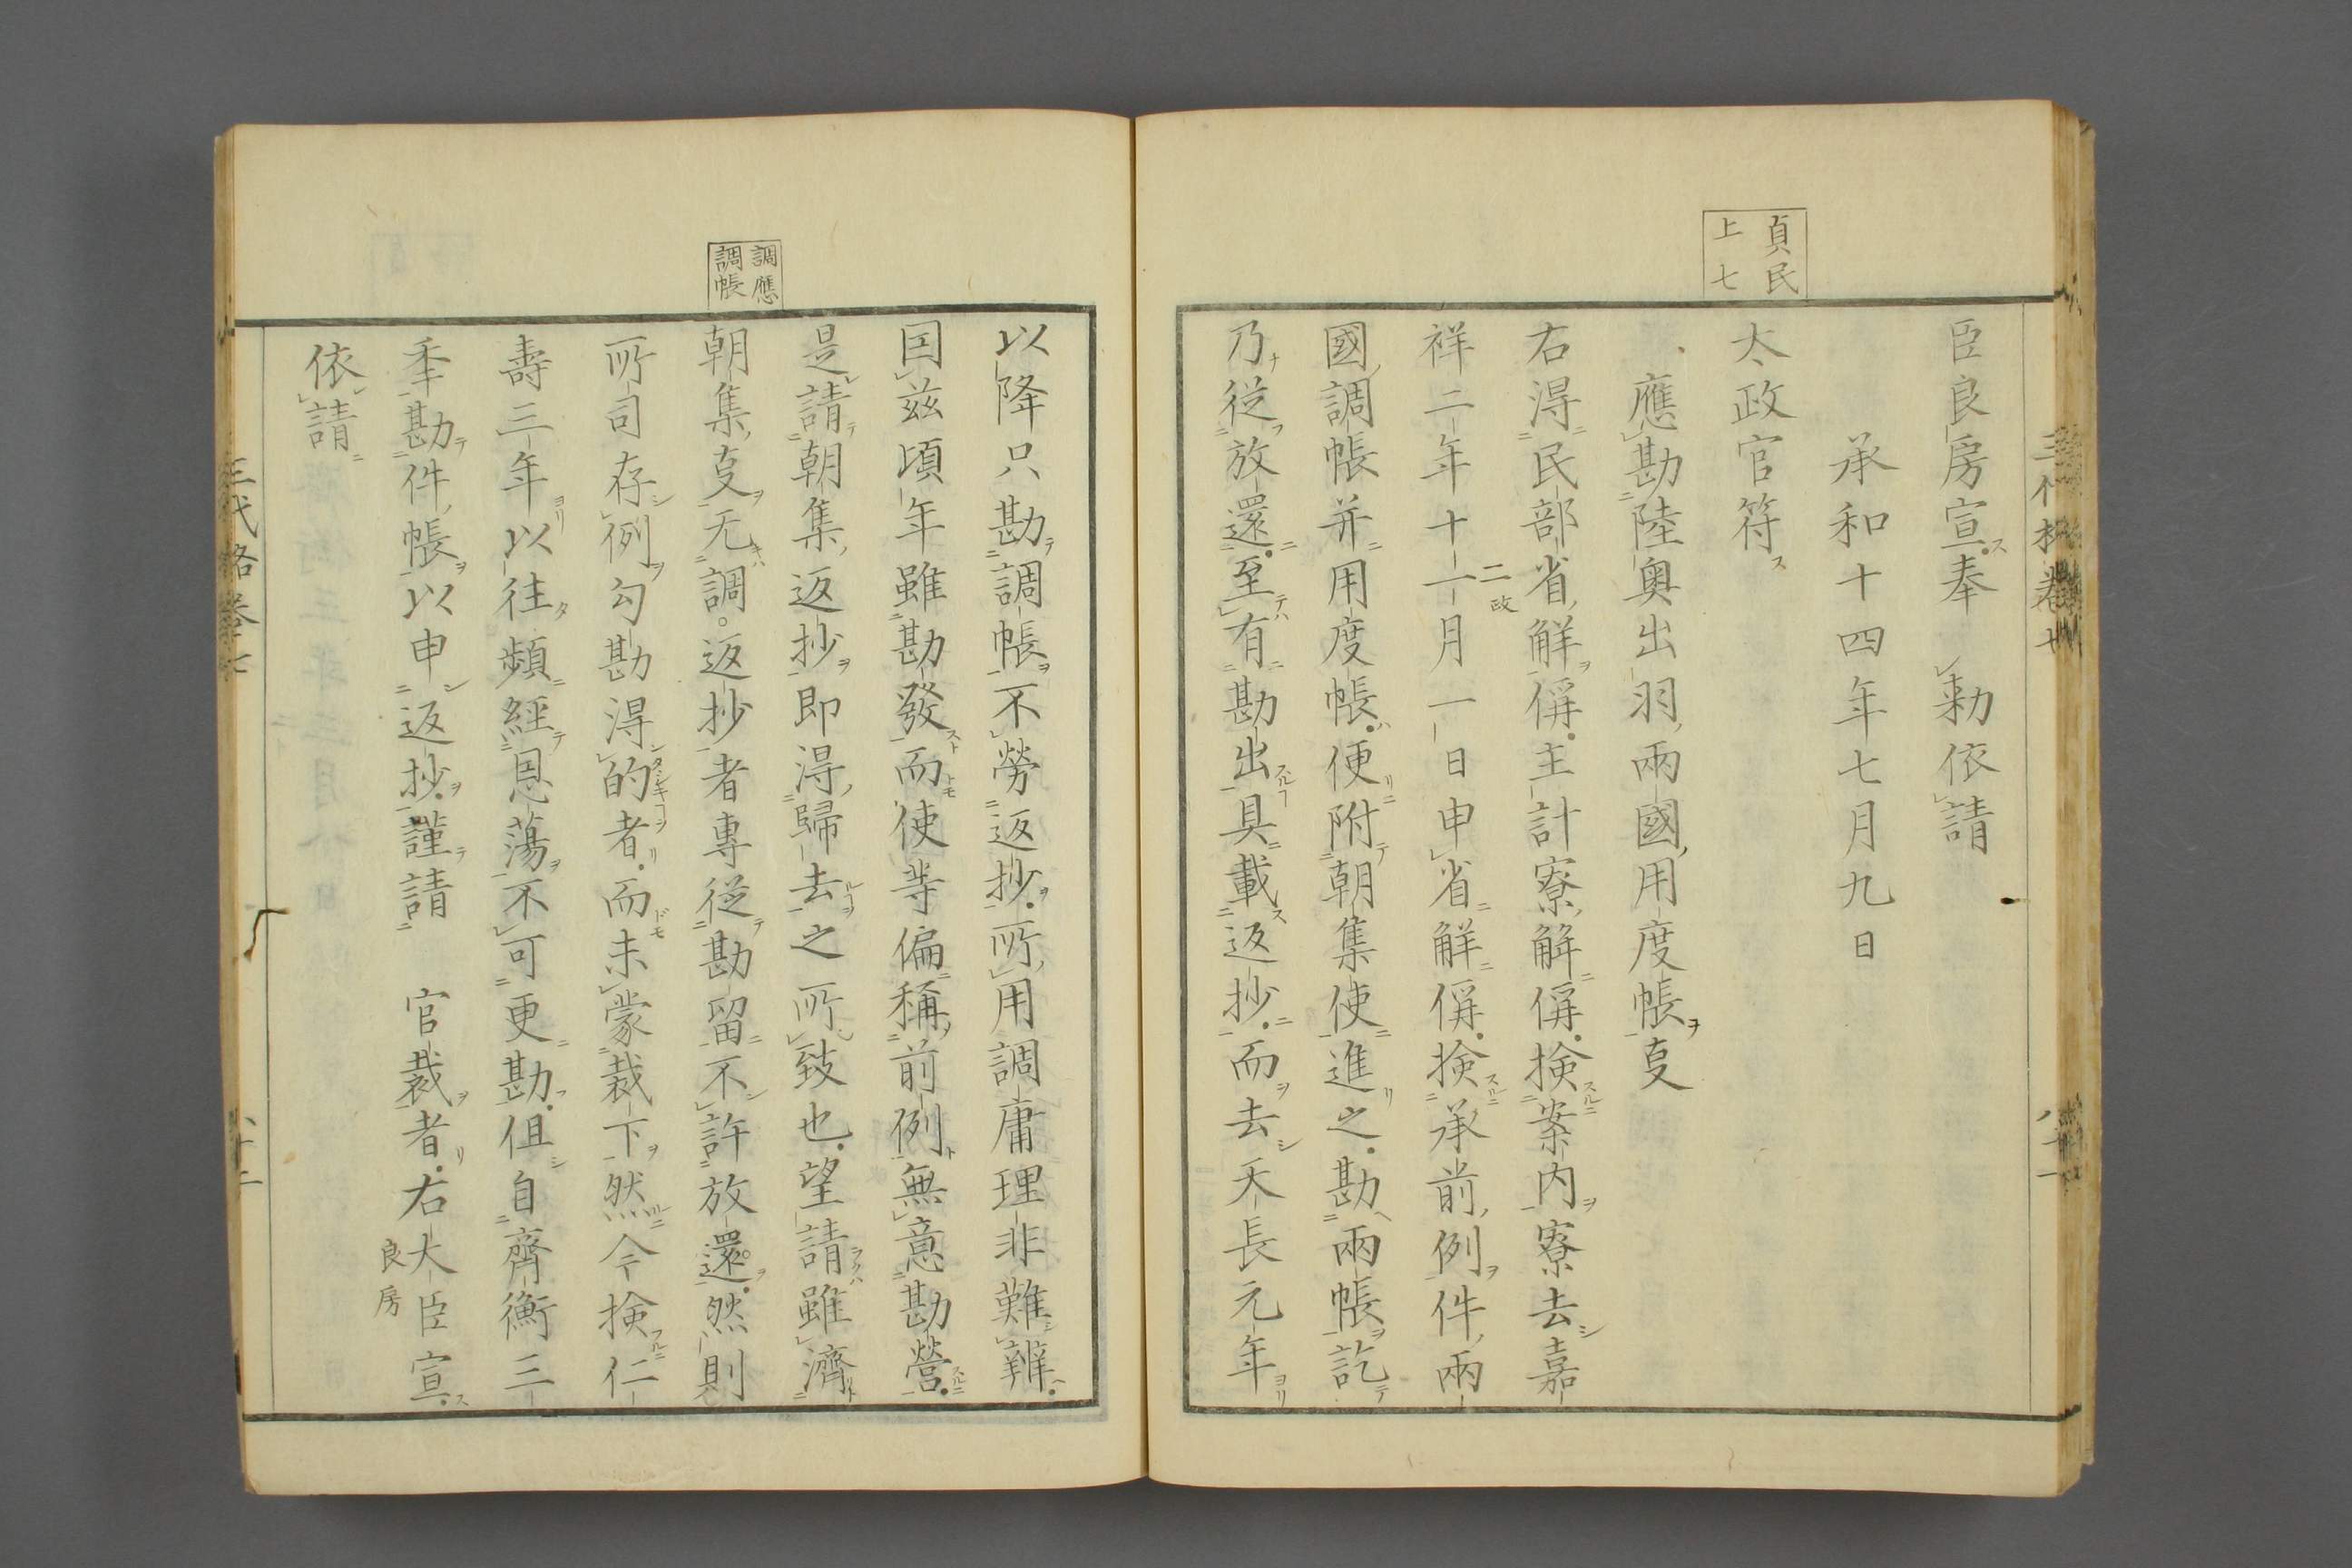 貞民
上七
臣良房宣奉　勅依請
承和十四年七月九日
太政官符
應勘陸奥出羽兩國用度帳㕝
右得民部省解偁主計寮解偁捡案内寮去嘉
祥二年十一月一日申省解偁捡承前例件兩
二改
國調帳并用度帳便附朝集使進之勘兩帳訖
乃從放還至有勘出具載返抄而去天長元年
調應
調帳
以降只勘調帳不勞返抄所用調庸理非難辨
因茲頃年雖勘發而使等偏稱前例無意勘營
是請朝集返抄即得歸去之所致也望請雖濟
朝集㕝无調返抄者專從勘留不許放還然則
所司存例勾勘得的者而未蒙裁下然今捡仁
壽三年以往頻經恩蕩不可更勘但自齊衡三
秊勘件帳以申返抄謹請　官裁者右大臣宣
良房
依請
三代格卷七